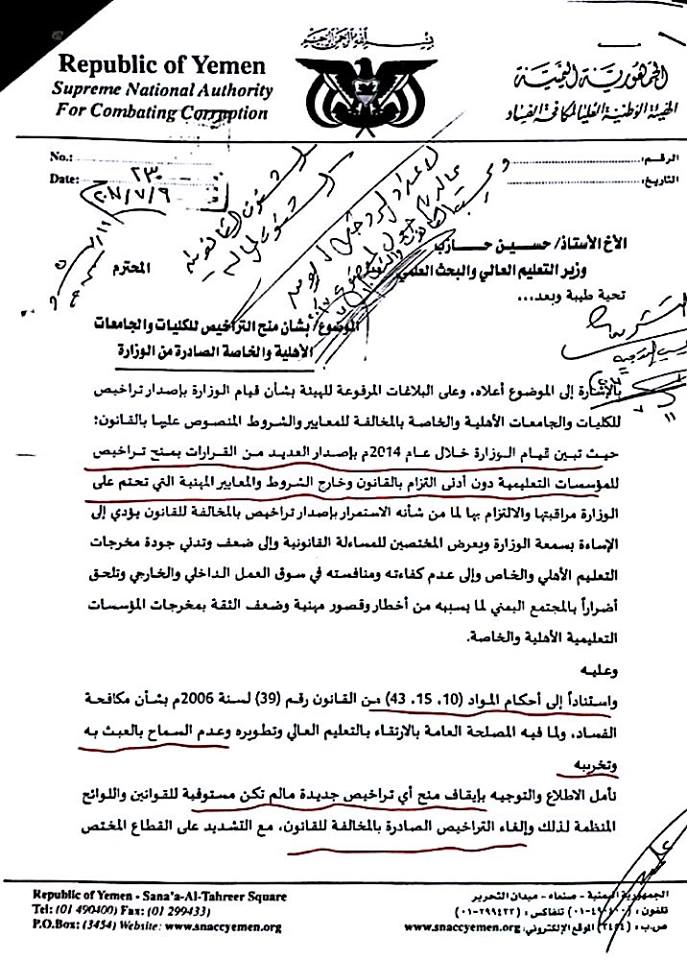 Republic of Yemen
Supreme National Authority
For Combating Corruption
الجمهورية اليمنية
الهيئة الوطنية العليا لمكافحة الفساد
No.:
Date:
٢٠١٧/٧/٦
الرقم:
التاريخ:
الأخ الأستاذ/ حسين حازب
وزير التعليم العالي والبحث العلمي
المحترم
تحية طيبة وبعد...
الموضوع/ بشأن منح التراخيص للكليات والجامعات
الأهلية والخاصة الصادرة من الوزارة
بالإشارة إلى الموضوع أعلاه، وعلى البلاغات المرفوعة للهيئة بشأن قيام الوزارة بإصدار تراخيص
للكليات والجامعات الأهلية والخاصة بالمخالفة للمعايير والشروط المنصوص عليها بالقانون؛
حيث تبين قيام الوزارة خلال عام 2014م بإصدار العديد من القرارات بمنح تراخيص
للمؤسسات التعليمية دون أدنى التزام بالقانون وخارج الشروط والمعايير المهنية التي تحتم على
الوزارة مراقبتها والالتزام بها لما من شأنه الاستمرار بإصدار تراخيص بالمخالفة للقانون يؤدي إلى
الإساءة بسمعة الوزارة ويعرض المختصين للمساءلة القانونية وإلى ضعف وتدني جودة مخرجات
التعليم الأهلي والخاص وإلى عدم كفاءته ومنافسته في سوق العمل الداخلي والخارجي وتلحق
أضراراً بالمجتمع اليمني لما يسببه من أخطار وقصور مهنية وضعف الثقة بمخرجات المؤسسات
التعليمية الأهلية والخاصة.
وعليه
واستناداً إلى أحكام المواد (10، 15، 43) من القانون رقم (39) لسنة 2006م بشأن مكافحة
الفساد، ولما فيه المصلحة العامة بالارتقاء بالتعليم العالي وتطويره وعدم السماح بالعبث به
وتخريبه
نأمل الاطلاع والتوجيه بإيقاف منح أي تراخيص جديدة مالم تكن مستوفية للقوانين واللوائح
المنظمة لذلك وإلغاء التراخيص الصادرة بالمخالفة للقانون، مع التشديد على القطاع المختص
Republic of Yemen - Sana'a-Al-Tahreer Square
Tel: (01 490400) Fax: (01 299433)
P.O.Box: (3454) Website: www.snaccyemen.org
الجمهورية اليمنية - صنعاء - ميدان التحرير
تلفون : (٤٩٠٤٠٠-٠١) تلفاكس : (٢٩٩٤٣٣-٠١)
ص.ب : (٣٤٥٤) الموقع الإلكتروني: www.snaccyemen.org